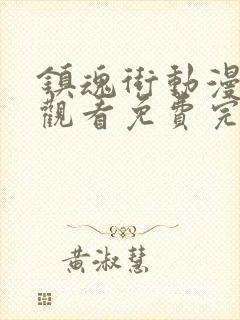 鎮魂街動漫
觀看免費完
黃淑慧